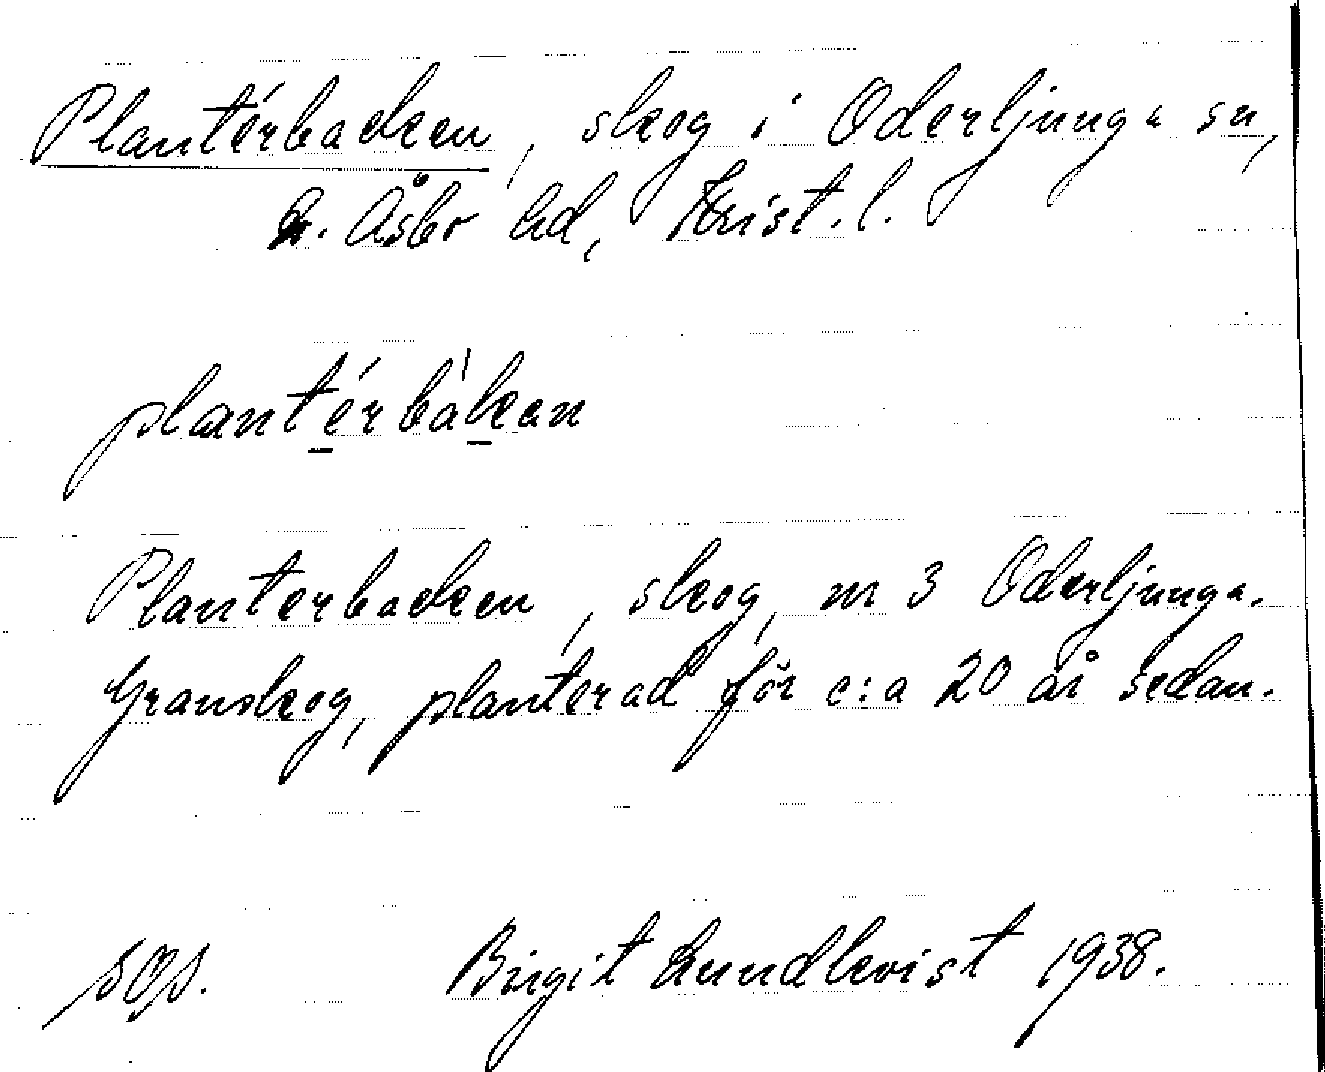 Plantérbacken, skog i Oderljunga sn,
N. Åsbo hd, Krist. l.
plantérbàkan
Planterbacken, skog, nr 3 Oderljunga.
Granskog, planterad för c:a 20 år sedan.
Birgit Lundkvist 1938.